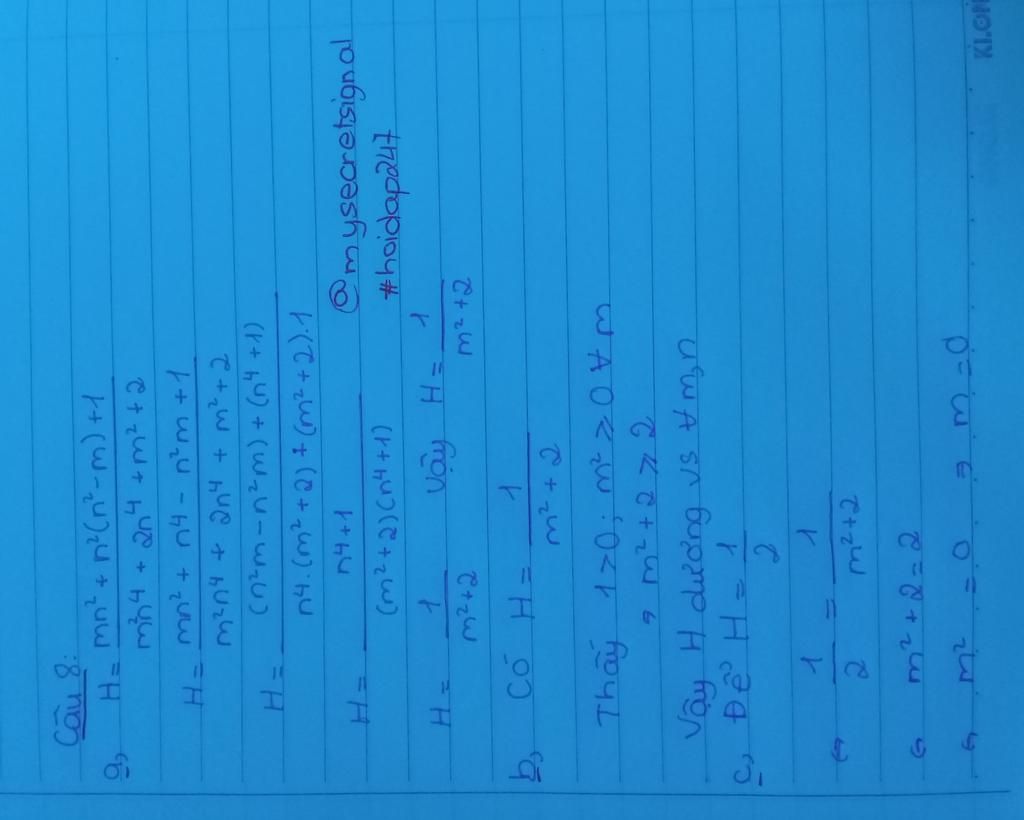 Câu 8:
a, H = (mn² + n²(n² - m) + 1) / (m²n⁴ + 2n⁴ + m² + 2)
H = (mn² + n⁴ - n²m + 1) / (m²n⁴ + 2n⁴ + m² + 2)
H = ((n²m - n²m) + (n⁴ + 1)) / (n⁴.(m² + 2) + (m² + 2).1)
H = (n⁴ + 1) / ((m² + 2)(n⁴ + 1))
@mysecretsignal
#hoidap247
H = 1 / (m² + 2) Vậy H = 1 / (m² + 2)
b, Có H = 1 / (m² + 2)
Thấy 1 > 0; m² ≥ 0 ∀ m
, m² + 2 ≥ 2
Vậy H dương vs ∀ m,n
c, Để H = 1 / 2
⇔ 1 / 2 = 1 / (m² + 2)
⇔ m² + 2 = 2
⇔ m² = 0 ⇒ m = 0
KLON